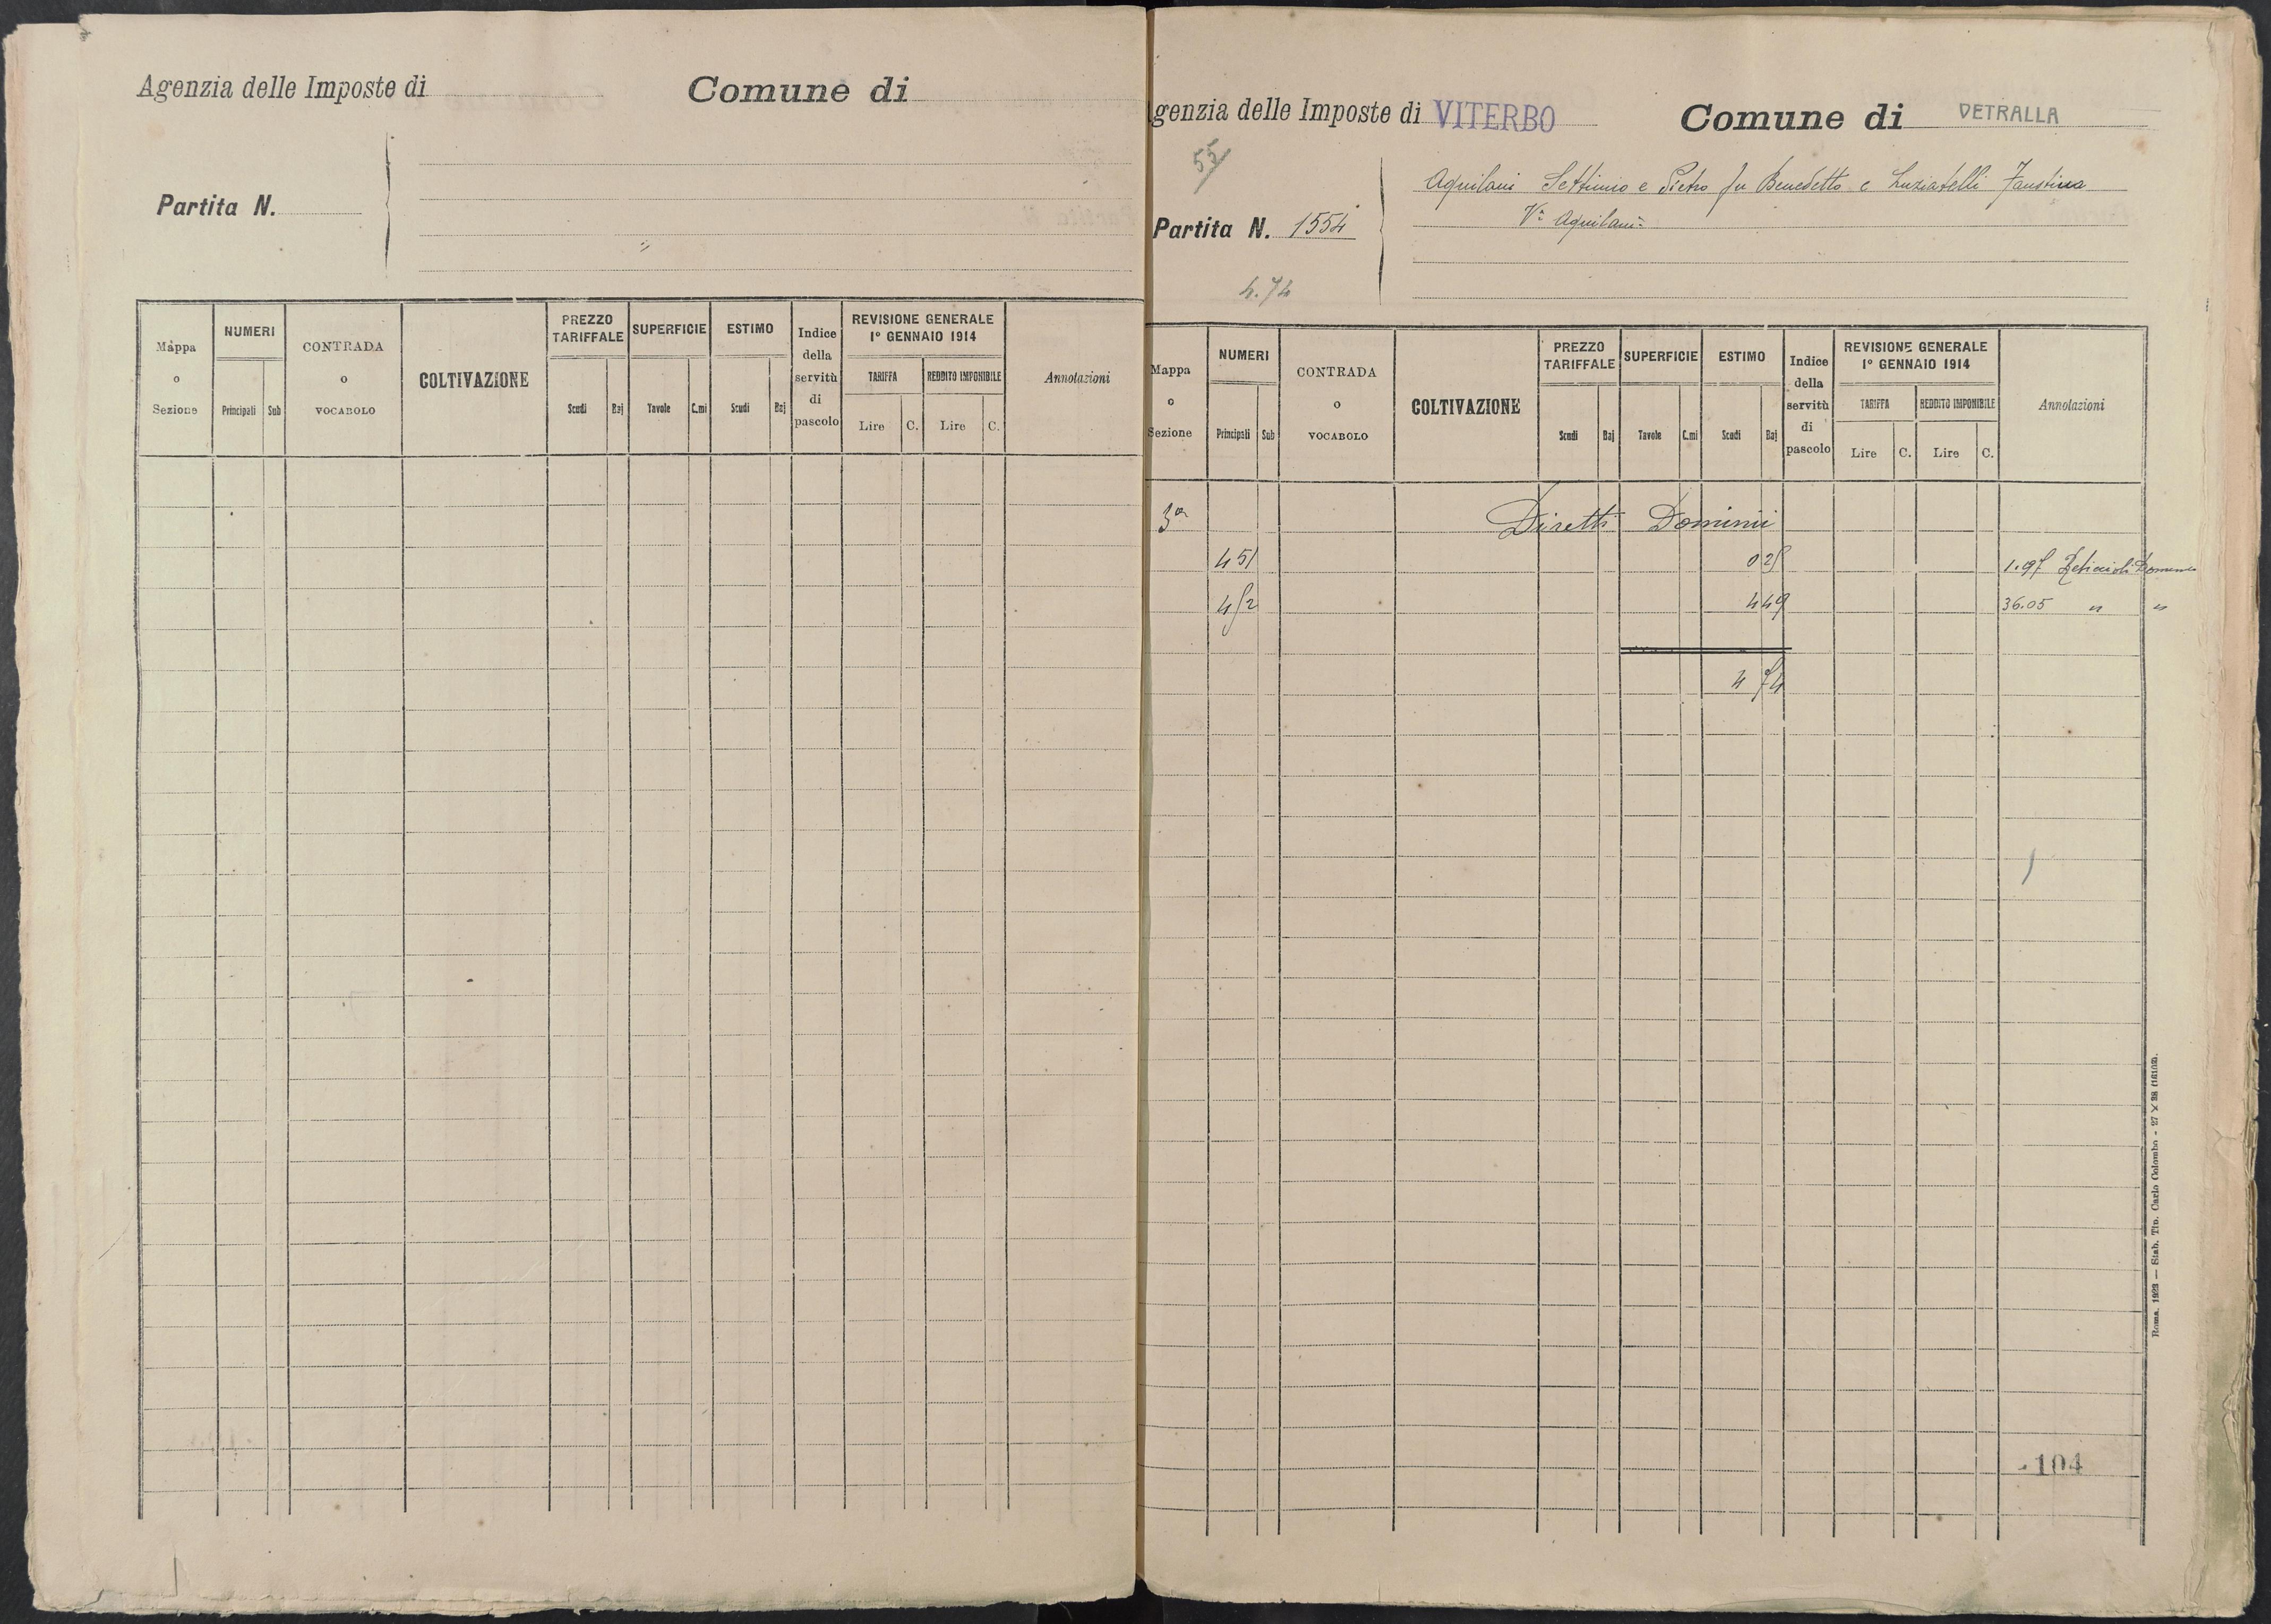 Agenzia delle Imposte di
Comune di
Partita N.
Mappa o Sezione
NUMERI
Principali Sub
CONTRADA o VOCABOLO
COLTIVAZIONE
PREZZO TARIFFALE
Scudi Baj
SUPERFICIE
Tavole C.mi
ESTIMO
Scudi Baj
Indice della servitù di pascolo
REVISIONE GENERALE 1° GENNAIO 1914
TARIFFA
Lire C.
REDDITO IMPONIBILE
Lire C.
Annotazioni
genzia delle Imposte di VITERBO
Comune di VETRALLA
55
Partita N. 1554
4.74
Aquilani Settimio e Pietro fu Benedetto e Luziatelli Faustina
Va Aquilani
Mappa o Sezione
NUMERI
Principali Sub
CONTRADA o VOCABOLO
COLTIVAZIONE
PREZZO TARIFFALE
Scudi Baj
SUPERFICIE
Tavole C.mi
ESTIMO
Scudi Baj
Indice della servitù di pascolo
REVISIONE GENERALE 1° GENNAIO 1914
TARIFFA
Lire C.
REDDITO IMPONIBILE
Lire C.
Annotazioni
3a Diretti Dominii
451 0 25 1.97
452 4 49 36.05 " "
4 74
104
Roma, 1923 — Stab. Tip. Carlo Colombo -